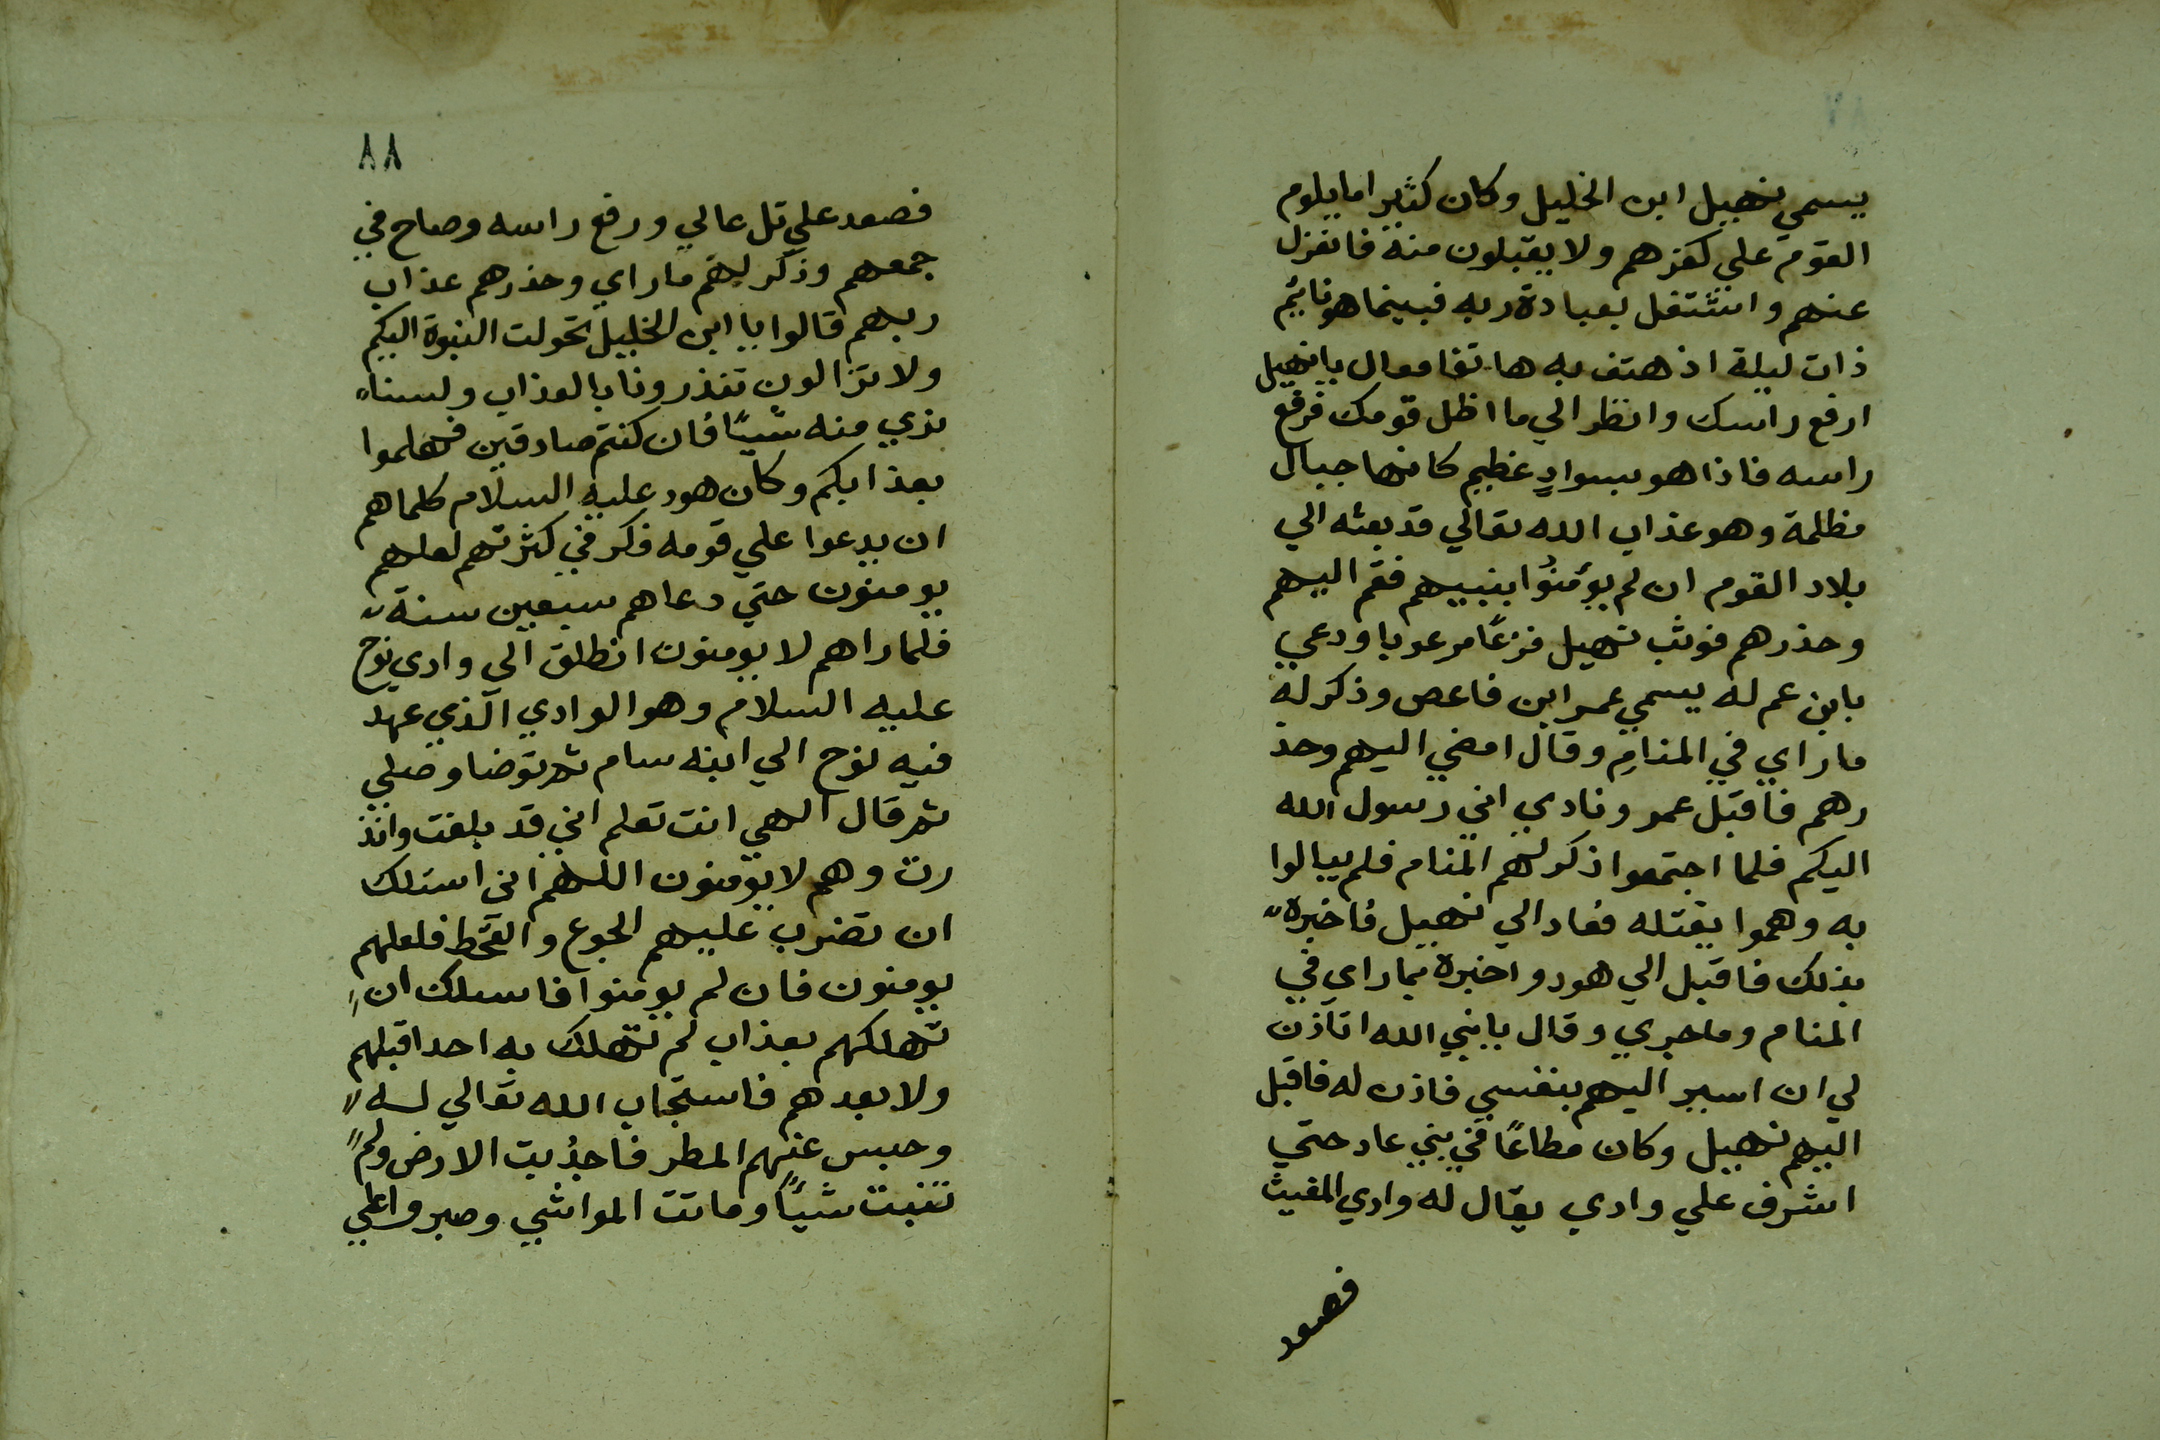 يسمي نهيل ابن الخليل وكان كثيرا ما يلوم
القوم علي كفرهم ولا يقبلون منه فانعزل
عنهم واشتغل بعبادة ربه فبينما هو نايم
ذات ليلة اذ هتف به هاتفا فقال يا نهيل
ارفع راسك وانظر الي ما اظل قومك فرفع
راسه فاذا هو بسوادٍ عظيم كانها جبال
مظلمة وهو عذاب الله تعالي قد بعثه الي
بلاد القوم ان لم يؤمنُوا بنبيهم فقم اليهم
وحذرهم فوثب نهيل فزعًا مرعوبا ودعي
بابن عم له يسمي عمر ابن فاعص وذكر له
ما راي في المنامِ وقال امضي اليهم وحذ
رهم فاقبل عمر ونادي اني رسول الله
اليكم فلما اجتمعوا ذكر لهم المنام فلم يبالوا
به وهموا بقتله فعاد الي نهيل فاخبره
بذلك فاقبل الي هود واخبره بما راي في
المنام وما جري وقال يا نبي الله اتاذن
لي ان اسير اليهم بنفسي فاذن له فاقبل
اليهم نهيل وكان مطاعًا في بني عاد حتي
اشرف علي وادي يقال له وادي المغيث
فصعد
٨٨
فصعد علي تل عالي ورفع راسه وصاح في
جمعهم وذكر لهم ما راي وحذرهم عذاب
ربهم قالوا يا ابن الخليل تحولت النبوة اليكم
ولا تزالون تنذرونا بالعذاب ولسنا
نري منه شيئًا فان كنتم صادقين فهلموا
بعذابكم وكان هود عليه السلام كلما هم
ان يدعوا علي قومه فكر في كثرتهم لعلهم
يومنون حتي دعاهم سبعين سنة
فلما راهم لا يومنون انطلق الي وادي نوح
عليه السلام وهو الوادي الذي عهد
فيه نوح الي ابنه سام ثم توضا وصلي
ثم قال الهي انت تعلم اني قد بلغت وانذ
رت وهم لا يؤمنون اللهم اني اسئلك
ان تضرب عليهم الجوع والقحط فلعلهم
يومنون فان لم يومنوا فاسلك ان
تهلكهم بعذاب لم تهلك به احدا قبلهم
ولا بعدهم فاستجاب الله تعالي له
وحبس عنهم المطر فاجدُبت الارض ولم
تنبت شيئًا وماتت المواشي وصبروا علي